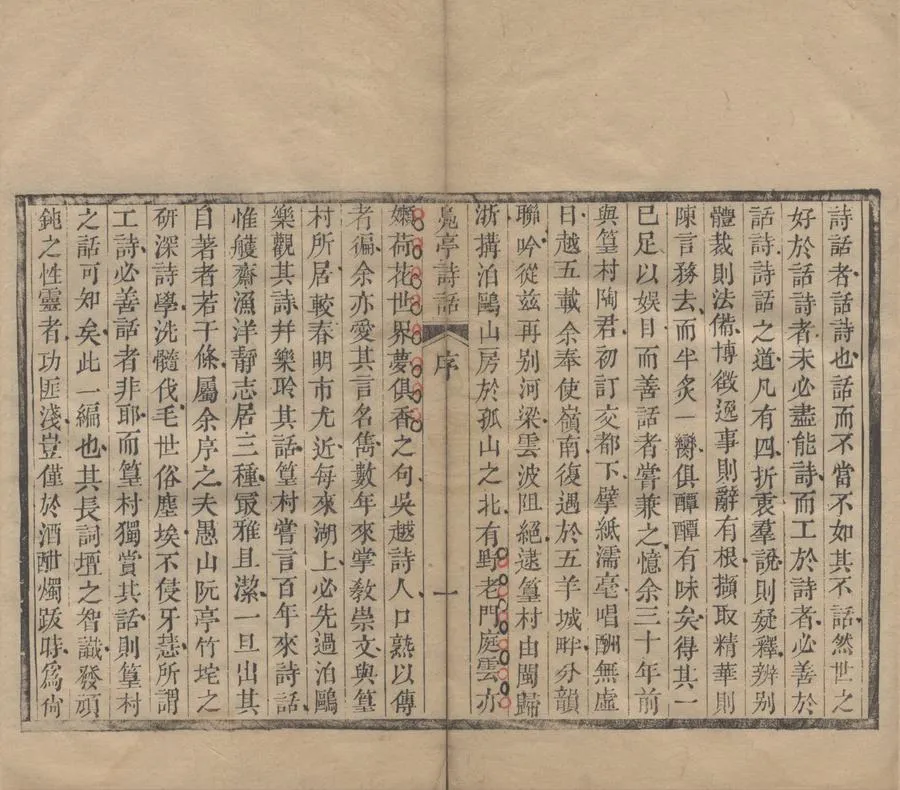 詩話者話詩也話而不當不如其不話然世之
好於話詩者未必盡能詩而工於詩者必善於
話詩詩話之道凡有四折衷羣說則疑釋辨别
體裁則法備博徵逸事則辭有根擷取精華則
陳言務去而半炙一臠俱醰醰有味矣得其一
已足以娛目而善話者嘗兼之憶余三十年前
與篁村陶君初訂交都下擘紙濡毫唱酬無虛
日越五載余奉使嶺南復遇於五羊城畔分韻
聯吟從兹再别河梁雲波阻絕逮篁村由閩歸
浙搆泊鷗山房於孤山之北有野老門庭雲亦
凫亭詩話 序 一
嬾荷花世界夢俱香之句吳越詩人口熟以傳
者徧余亦愛其言名雋數年來掌教崇文與篁
村所居較春明市尤近每來湖上必先過泊鷗
樂觀其詩并樂聆其話篁村嘗言百年來詩話
惟蠖齋漁洋靜志居三種最雅且潔一旦出其
自著者若干條屬余序之夫愚山阮亭竹垞之
研深詩學洗髓伐毛世俗塵埃不侵牙慧所謂
工詩必善話者非耶而篁村獨賞其話則篁村
之話可知矣此一編也其長詞壇之智識發頑
鈍之性靈者功匪淺豈僅於酒酣燭跋時爲尚